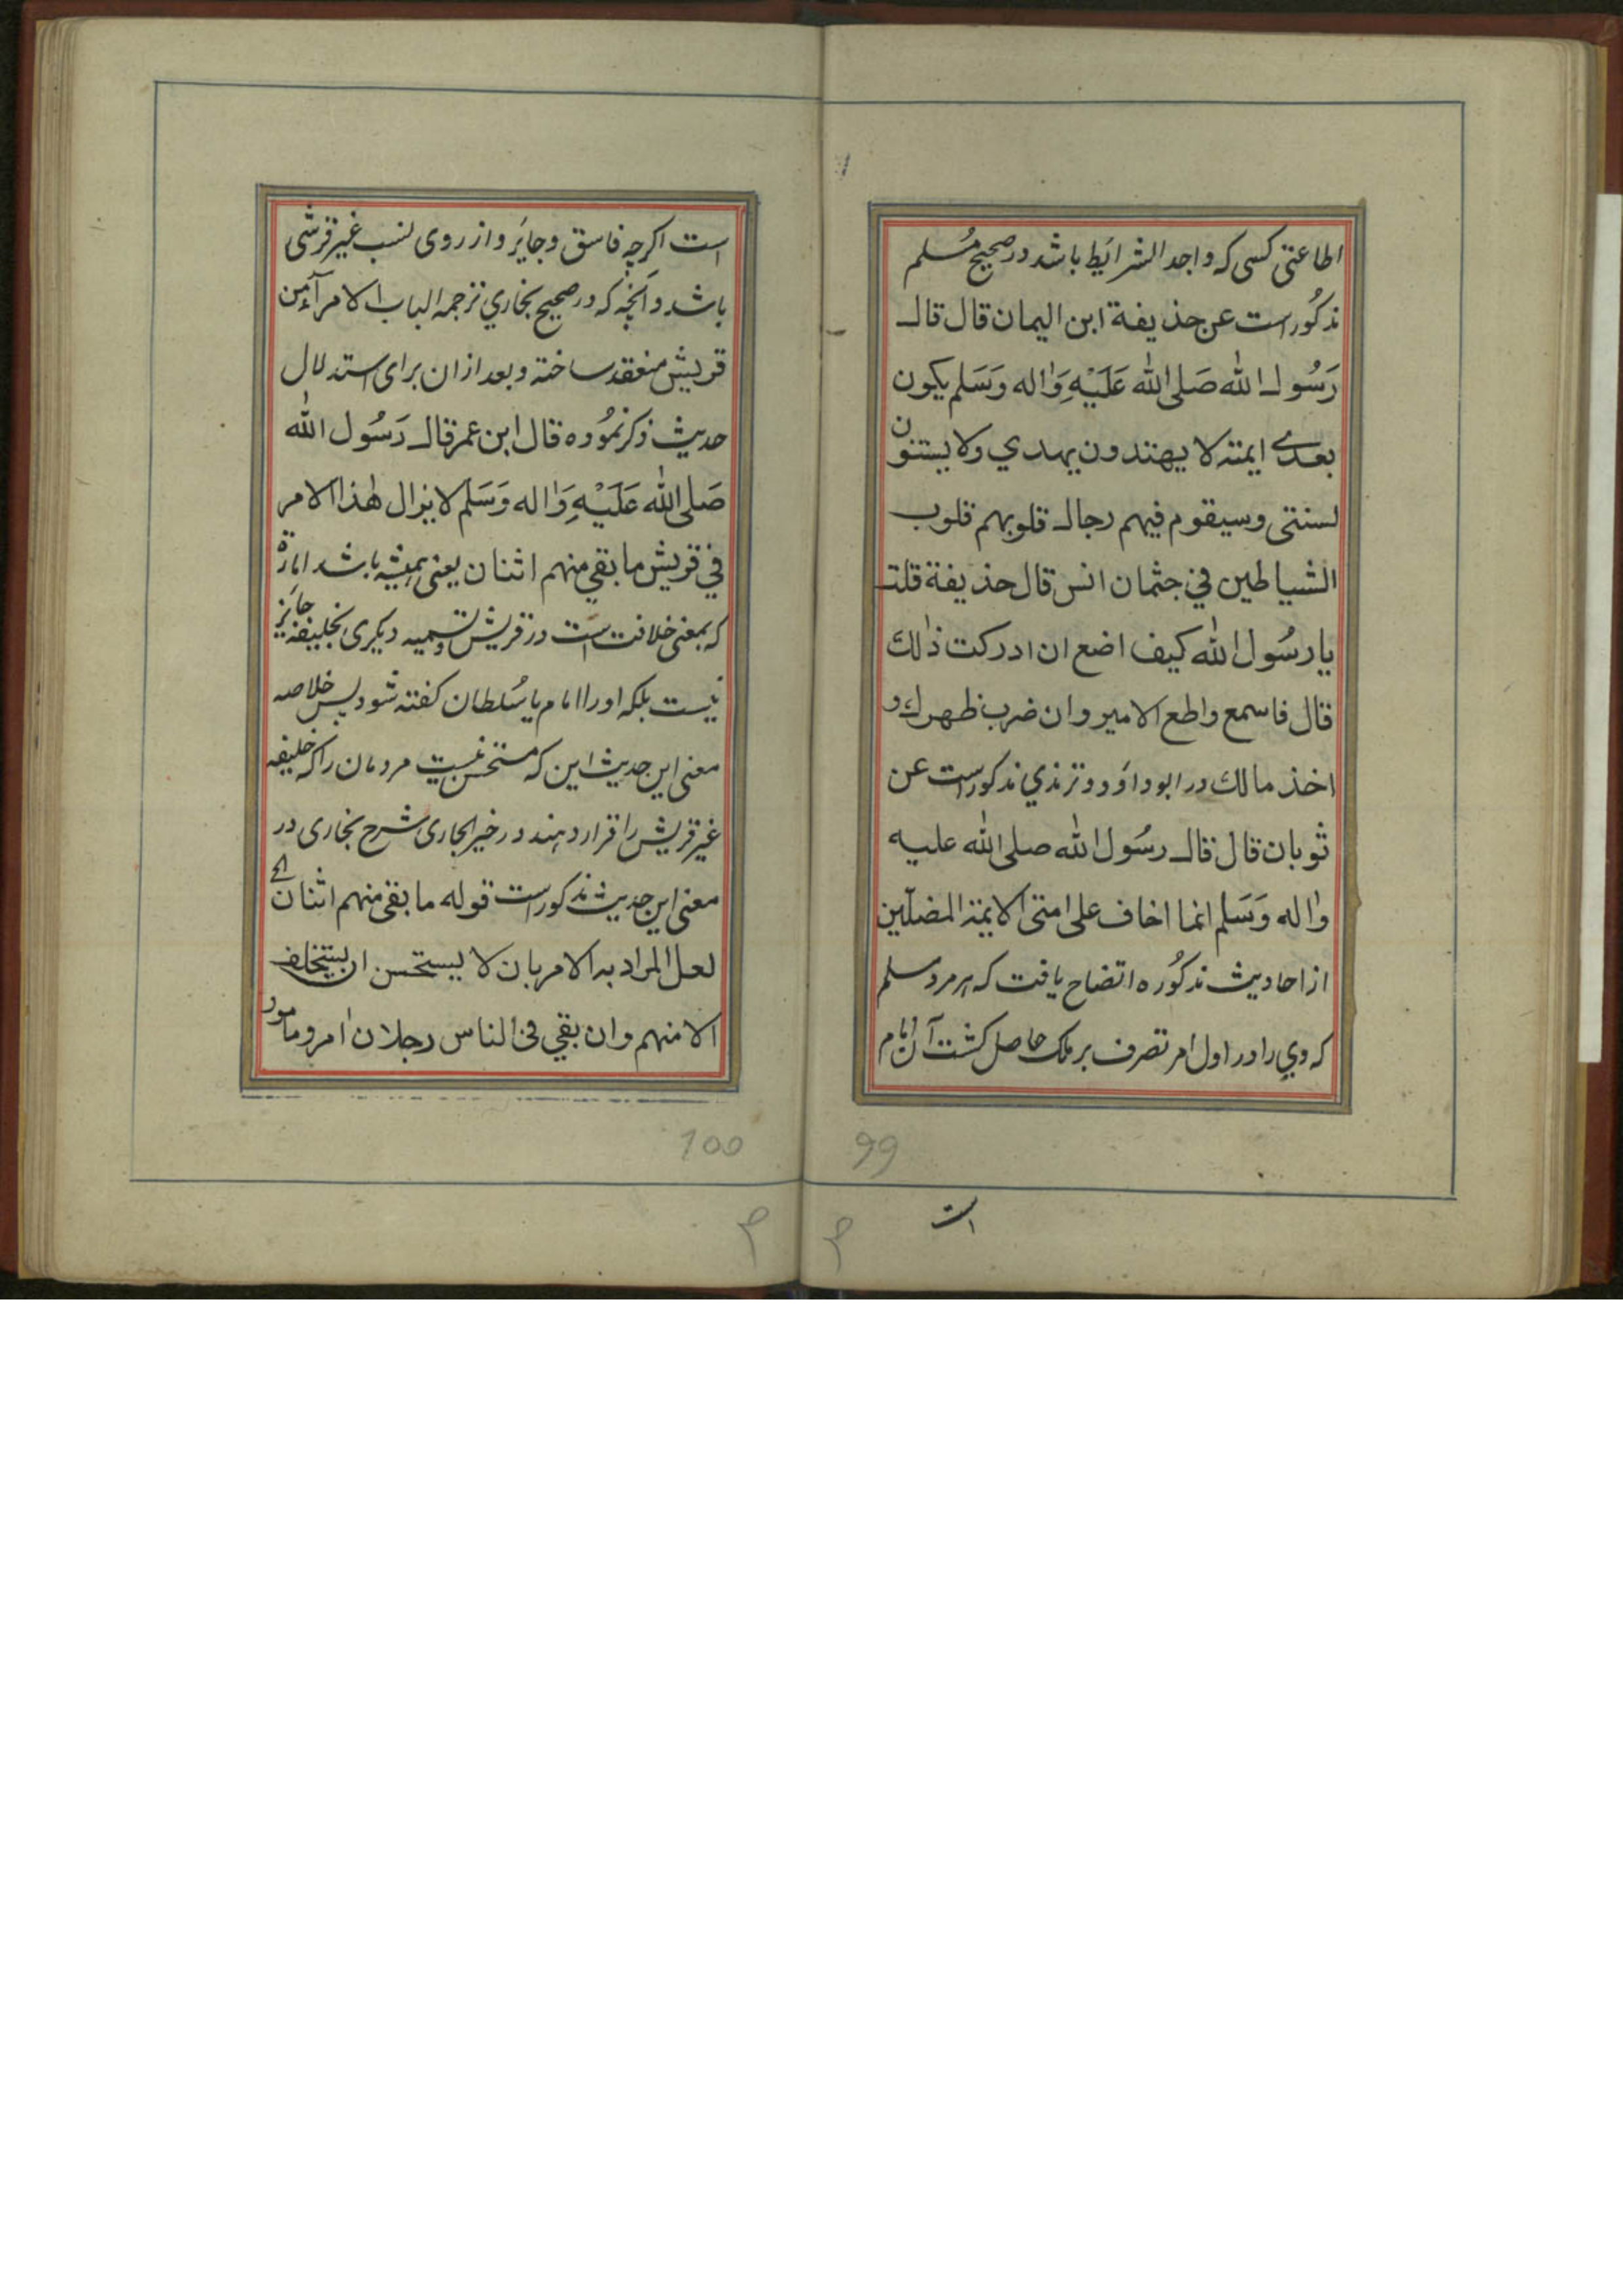 اطاعتی کسی که واجد الشرائط باشد در صحیح مُسلم
مذکُور است عن حذیفة ابن الیمان قال قال
رَسُول الله صَلی الله عَلَیْهِ وَاله وَسَلم یکون
بعدے ایمته لا یهتدون بهدي ولا یستنون
لسنتی وسیقوم فیهم رجال قلوبهم قلوب
الشیاطین في جثمان انس قال حذیفة قلت
یا رسُول الله کیف اضع ان ادرکت ذٰلك
قال فاسمع واطع الامیر وان ضرب ظهرك و
اخذ مالك در ابو داؤد و ترمذي مذکور است عن
ثوبان قال قال رسُول الله صلی الله علیه
واله وَسَلم انما اخاف علی امتی الایمة المضلّین
از احادیث مذکُوره اتضاح یافت که هر مرد مسلم
که وي را در اول امر تصرف بر ملک حاصل کشت آن امام
است
99
است اکرچه فاسق و جایَر و از روی نسب غیر قرشی
باشد و آنچه که در صحیح بخاري ترجمه الباب الامرآء من
قریش منعقد ساخته و بعد ازان برای استدلال
حدیث ذکر نمُوده قال ابن عمر قال رَسُول الله
صَلی الله عَلَیْهِ وَاله وَسَلم لا یزال هٰذا الامر
في قریش ما بقي منهم اثنان یعنی همیشه باشد امارة
که بمعنی خلافت است در قریش و تسمیه دیکری بخلیفه جایَز
نیست بلکه او را امام یا سُلطان کفته شود پس خلاصه
معنی این حدیث این که مستحسن نیست مردمان را که خلیفه
غیر قریش را قرار دهند در خیر الجاری شرح بخاری در
معنی این حدیث مذکور است قوله ما بقی منهم اثنان اے
لعل المراد به الامر بان لا یستحسن ان یستخلف
الا منهم وان بقي فی الناس رجلان امر ومامور
100